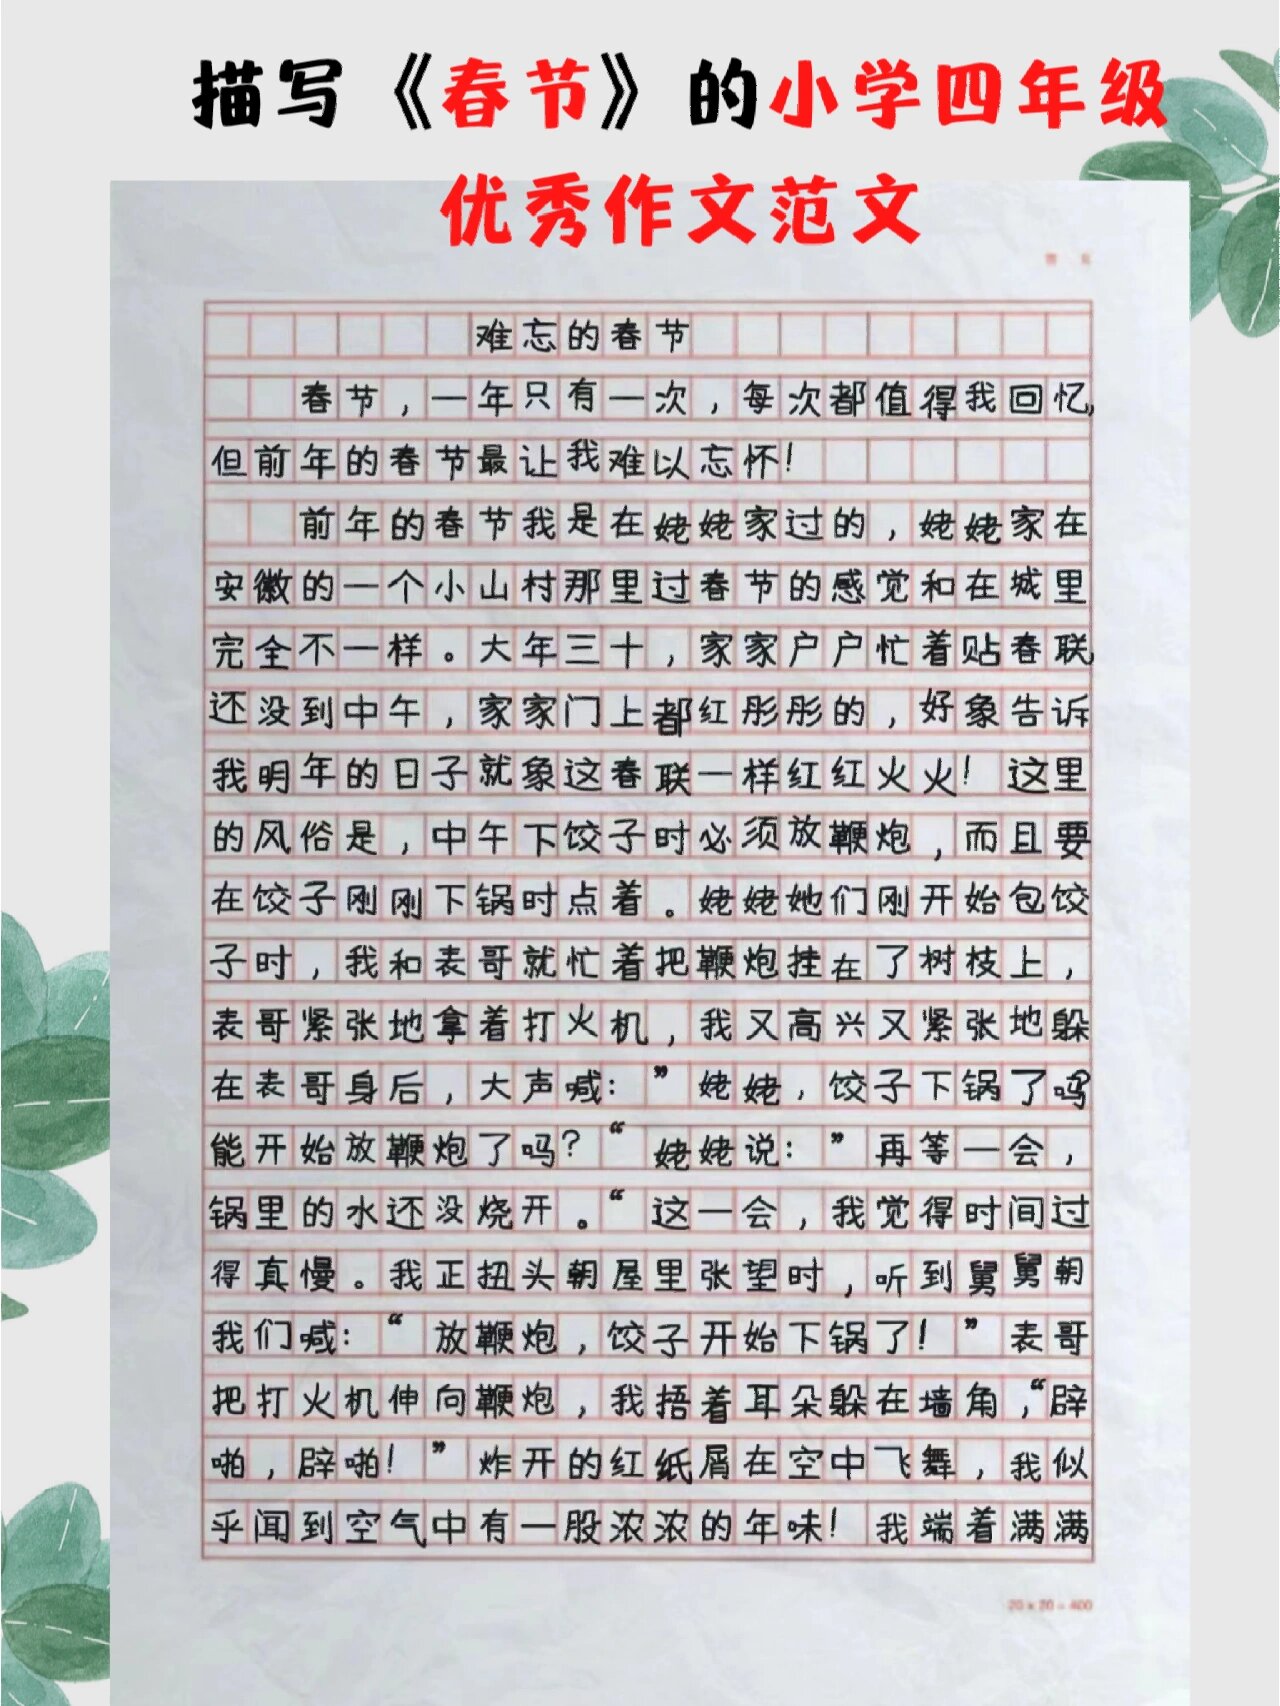 描写《春节》的小学四年级
优秀作文范文
难忘的春节
春节，一年只有一次，每次都值得我回忆，
但前年的春节最让我难以忘怀！
前年的春节我是在姥姥家过的，姥姥家在
安徽的一个小山村那里过春节的感觉和在城里
完全不一样。大年三十，家家户户忙着贴春联，
还没到中午，家家门上都红彤彤的，好象告诉
我明年的日子就象这春联一样红红火火！这里
的风俗是，中午下饺子时必须放鞭炮，而且要
在饺子刚刚下锅时点着。姥姥她们刚开始包饺
子时，我和表哥就忙着把鞭炮挂在了树枝上，
表哥紧张地拿着打火机，我又高兴又紧张地躲
在表哥身后，大声喊：”姥姥，饺子下锅了吗?
能开始放鞭炮了吗？“姥姥说：”再等一会，
锅里的水还没烧开。“这一会，我觉得时间过
得真慢。我正扭头朝屋里张望时，听到舅舅朝
我们喊：“放鞭炮，饺子开始下锅了！”表哥
把打火机伸向鞭炮，我捂着耳朵躲在墙角，“辟
啪，辟啪！”炸开的红纸屑在空中飞舞，我似
乎闻到空气中有一股浓浓的年味！我端着满满
20×20=400